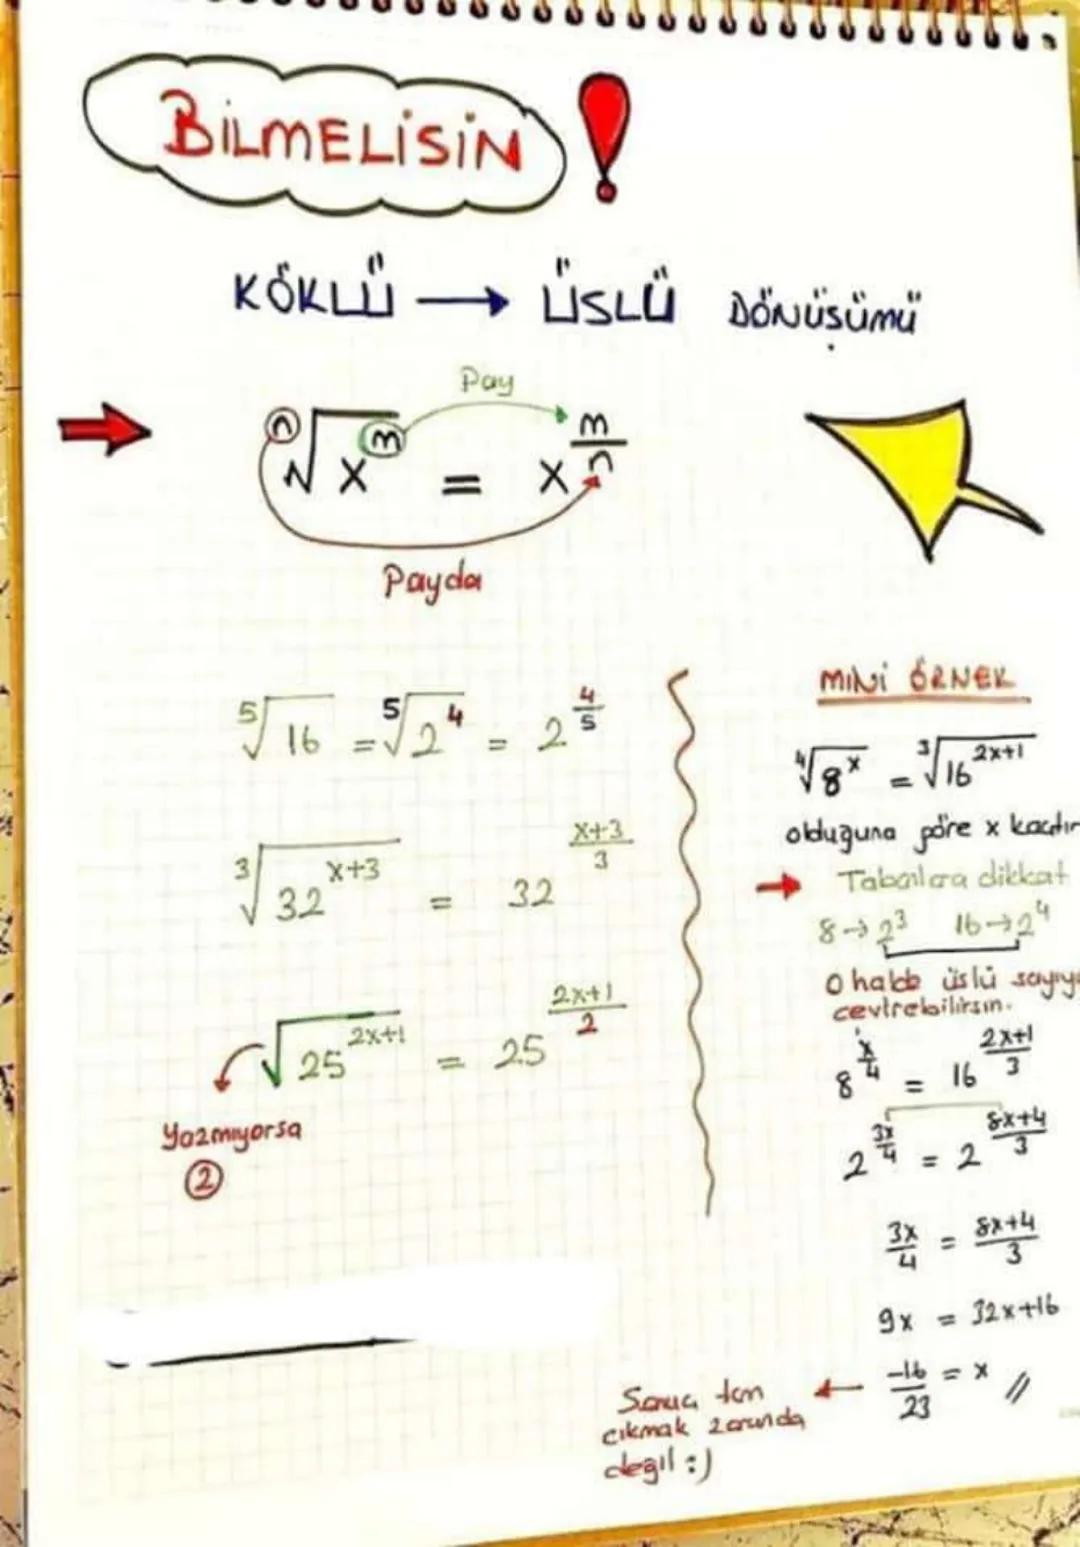 BİLMELİSİN !
KÖKLÜ → ÜSLÜ DÖNÜŞÜMÜ
Pay
ⁿ√x^m = x^(m/n)
Payda
⁵√16 = ⁵√2^4 = 2^(4/5)
³√32^(x+3) = 32^((x+3)/3)
√25^(2x+1) = 25^((2x+1)/2)
Yazmıyorsa
②
MİNİ ÖRNEK
⁴√8^x = ³√16^(2x+1)
olduğuna göre x kaçtır
→ Tabanlara dikkat
8→2^3 16→2^4
O halde üslü sayıya
çevirebilirsin.
8^(x/4) = 16^((2x+1)/3)
2^(3x/4) = 2^((8x+4)/3)
3x/4 = (8x+4)/3
9x = 32x+16
-16/23 = x //
Sonuç tam
çıkmak zorunda
değil :)